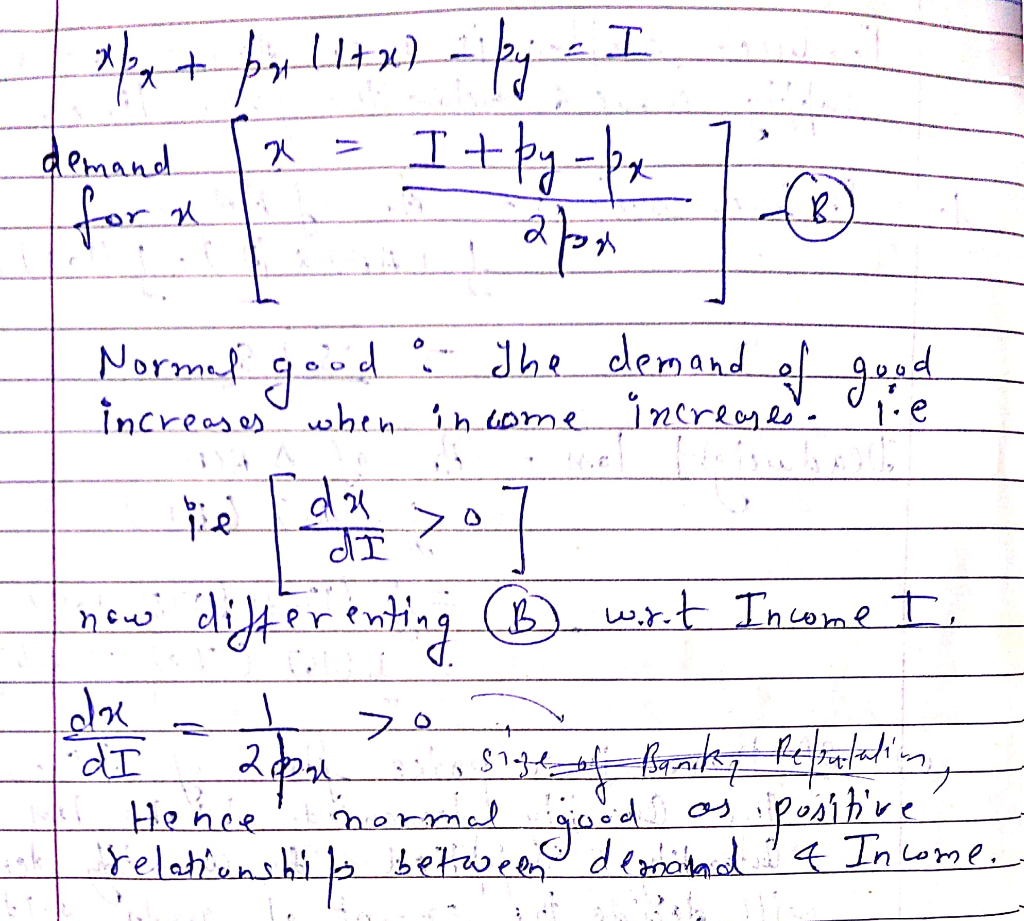 xpx + px(1+x) - py = I
demand for x [ x = (I + py - px) / 2px ] - (B)
Normal good :- The demand of good
increases when income increases. i.e
i.e [ dx/dI > 0 ]
now differenting (B) w.r.t Income I.
dx/dI = 1/2px > 0
, size of Bank, Reputation,
Hence normal good as positive
relationship between demand & Income.